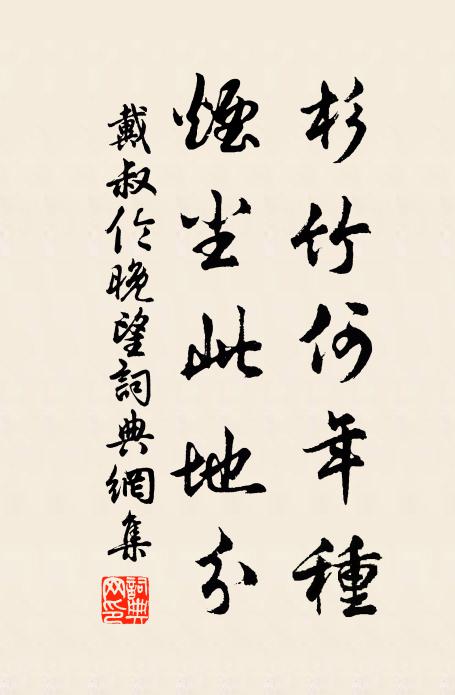 杉竹何年種
煙尘此地分
戴叔伦晚望詞典網集
詞典网印